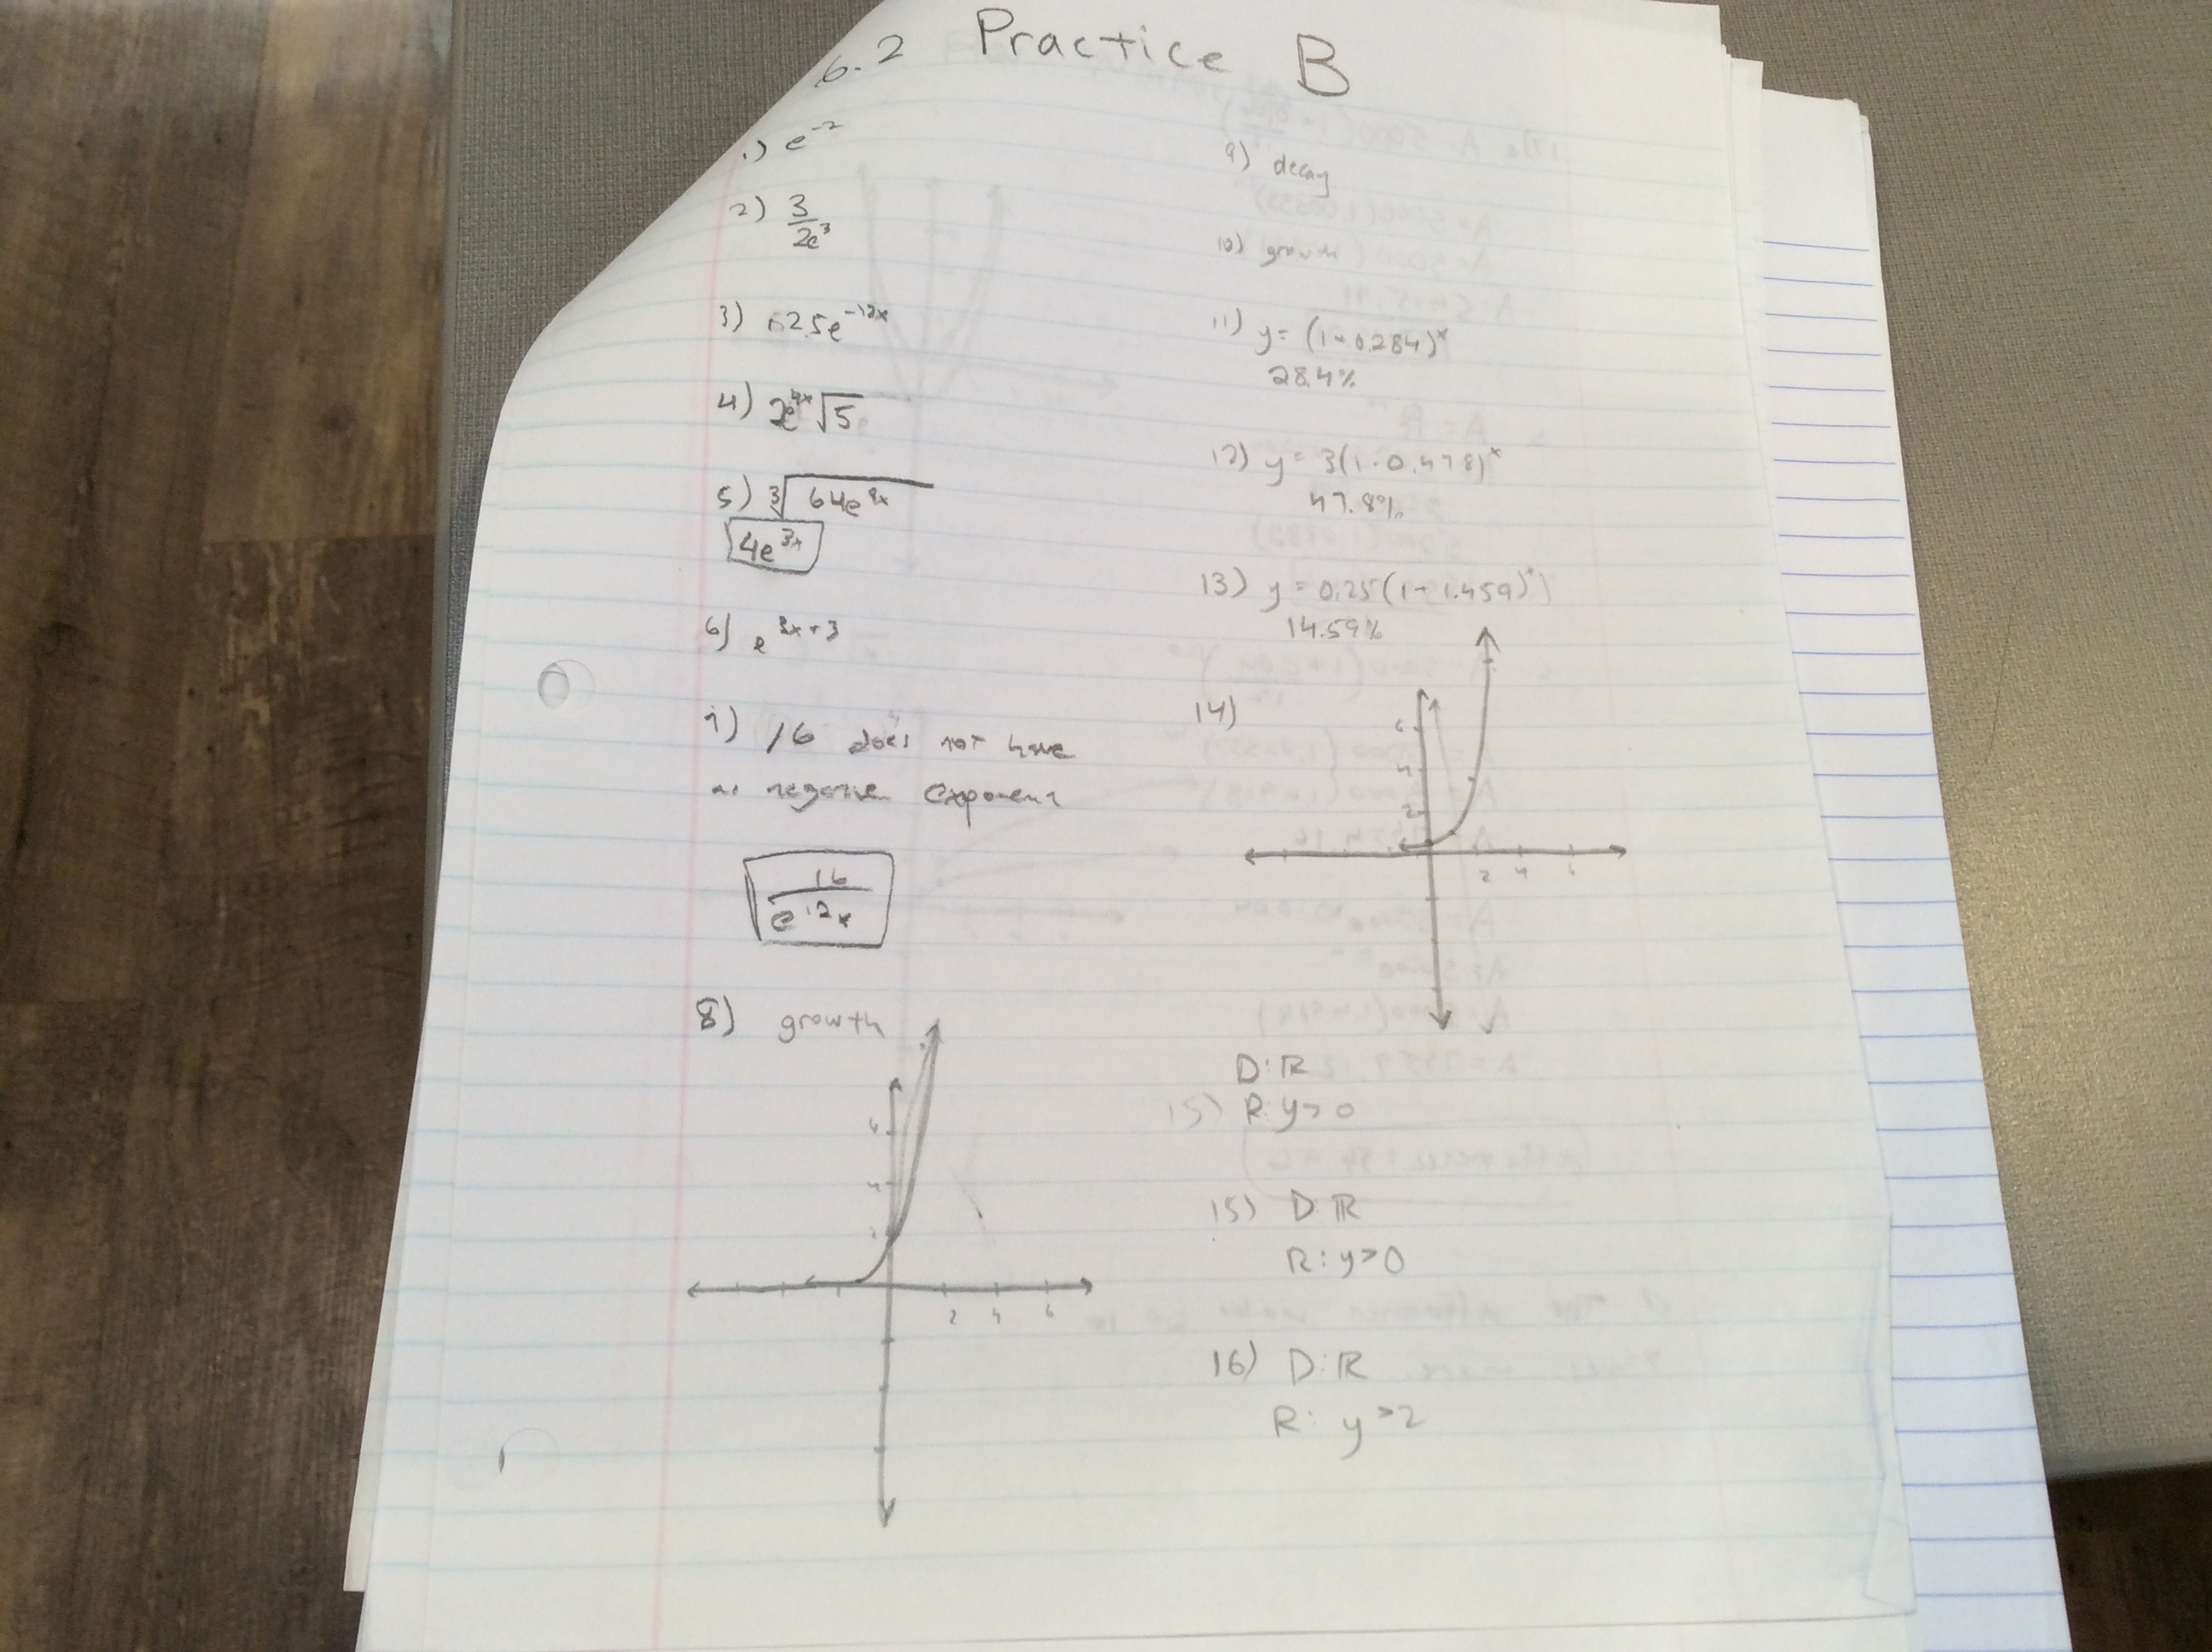 6.2 Practice B
1) e⁻²
2) 3/2e³
3) 625e⁻¹²ˣ
4) 2e⁴ˣ√5
5) ³√64e⁹ˣ
4e³ˣ
6) e³ˣ⁺³
7) 16 does not have
negative exponent
16/e¹²ˣ
8) growth
6
4
2
2 4 6
9) decay
10) growth
11) y = (1-0.284)ˣ
28.4%
12) y = 3(1-0.478)ˣ
47.8%
13) y = 0.25(1+1.459)ˣ
14.59%
14)
6
4
2
2 4 6
D: ℝ
15) R: y>0
15) D: ℝ
R: y>0
16) D: ℝ
R: y>2